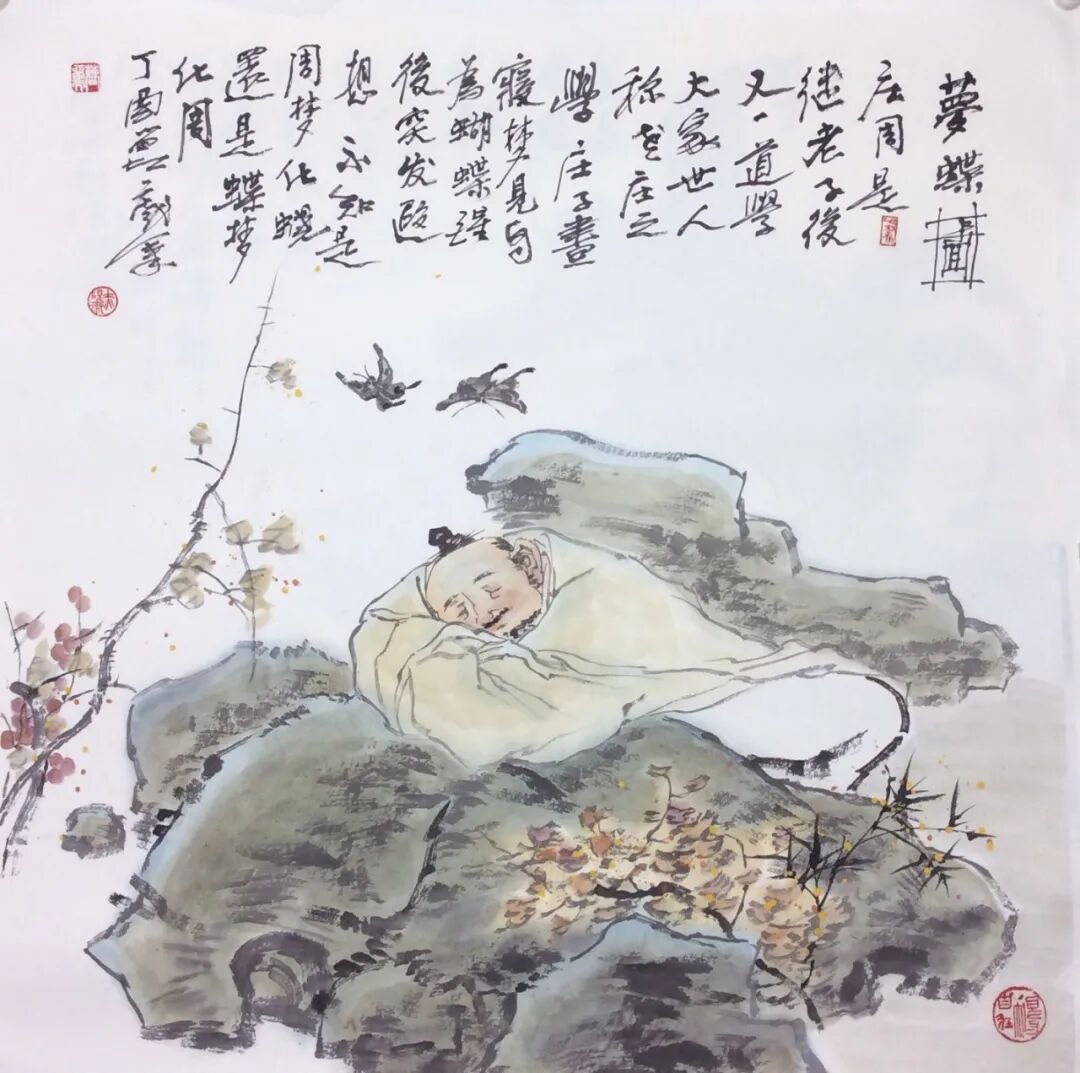 夢蝶圖
庄周是
继老子後
又一道學
大家世人
称老庄之
學庄子晝
寢梦見自
為蝴蝶醒
後突发遐
想不知是
周梦化蝶
還是蝶梦
化周
丁